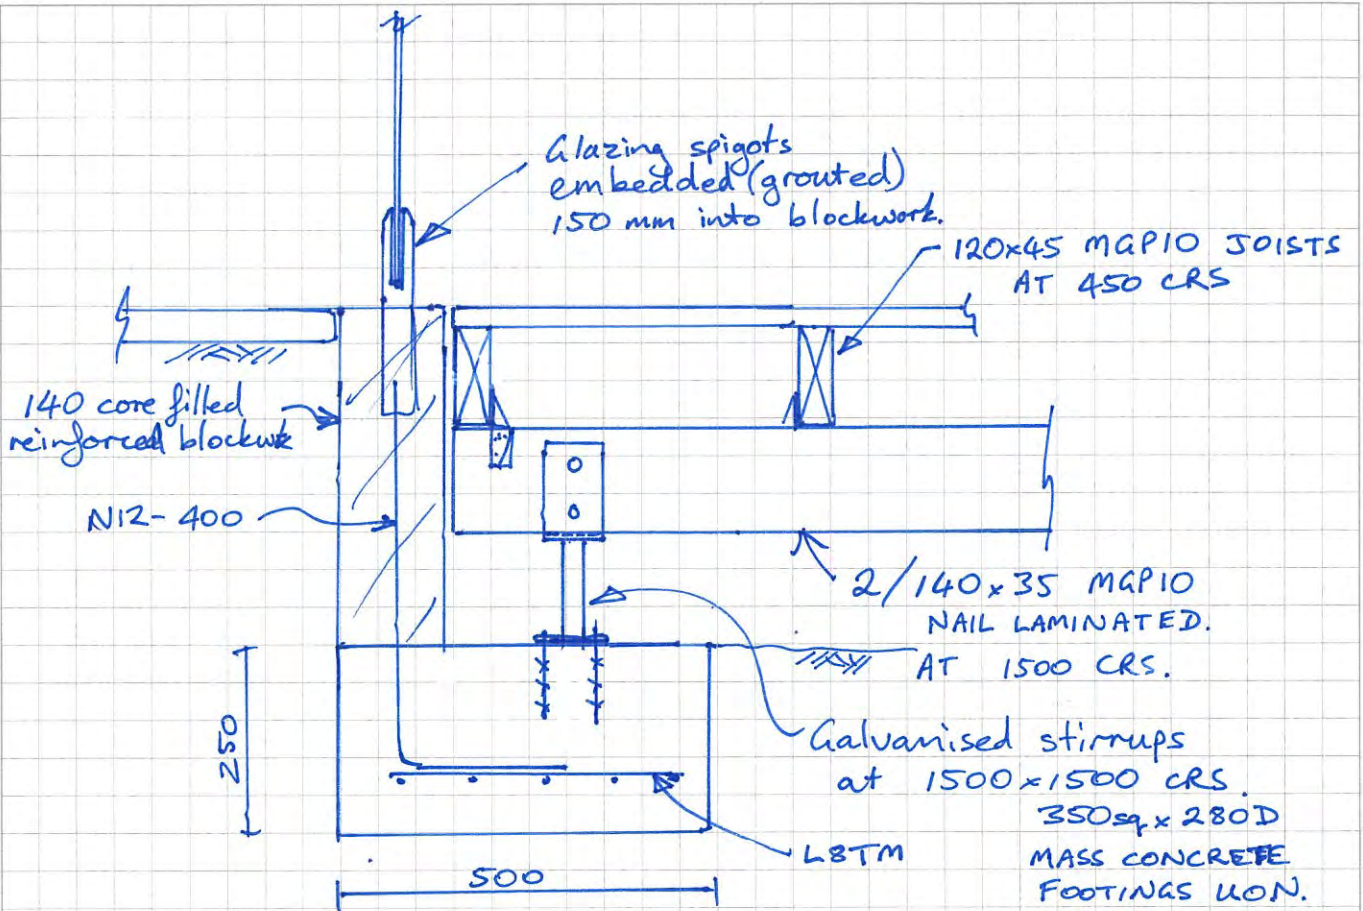 Glazing spigots
embedded (grouted)
150 mm into blockwork.
120x45 MGP10 JOISTS
AT 450 CRS
140 core filled
reinforced blockwk
N12-400
2/140x35 MGP10
NAIL LAMINATED.
AT 1500 CRS.
250
Galvanised stirrups
at 1500x1500 CRS.
350sq. x 280D
MASS CONCRETE
FOOTINGS UON.
L8TM
500